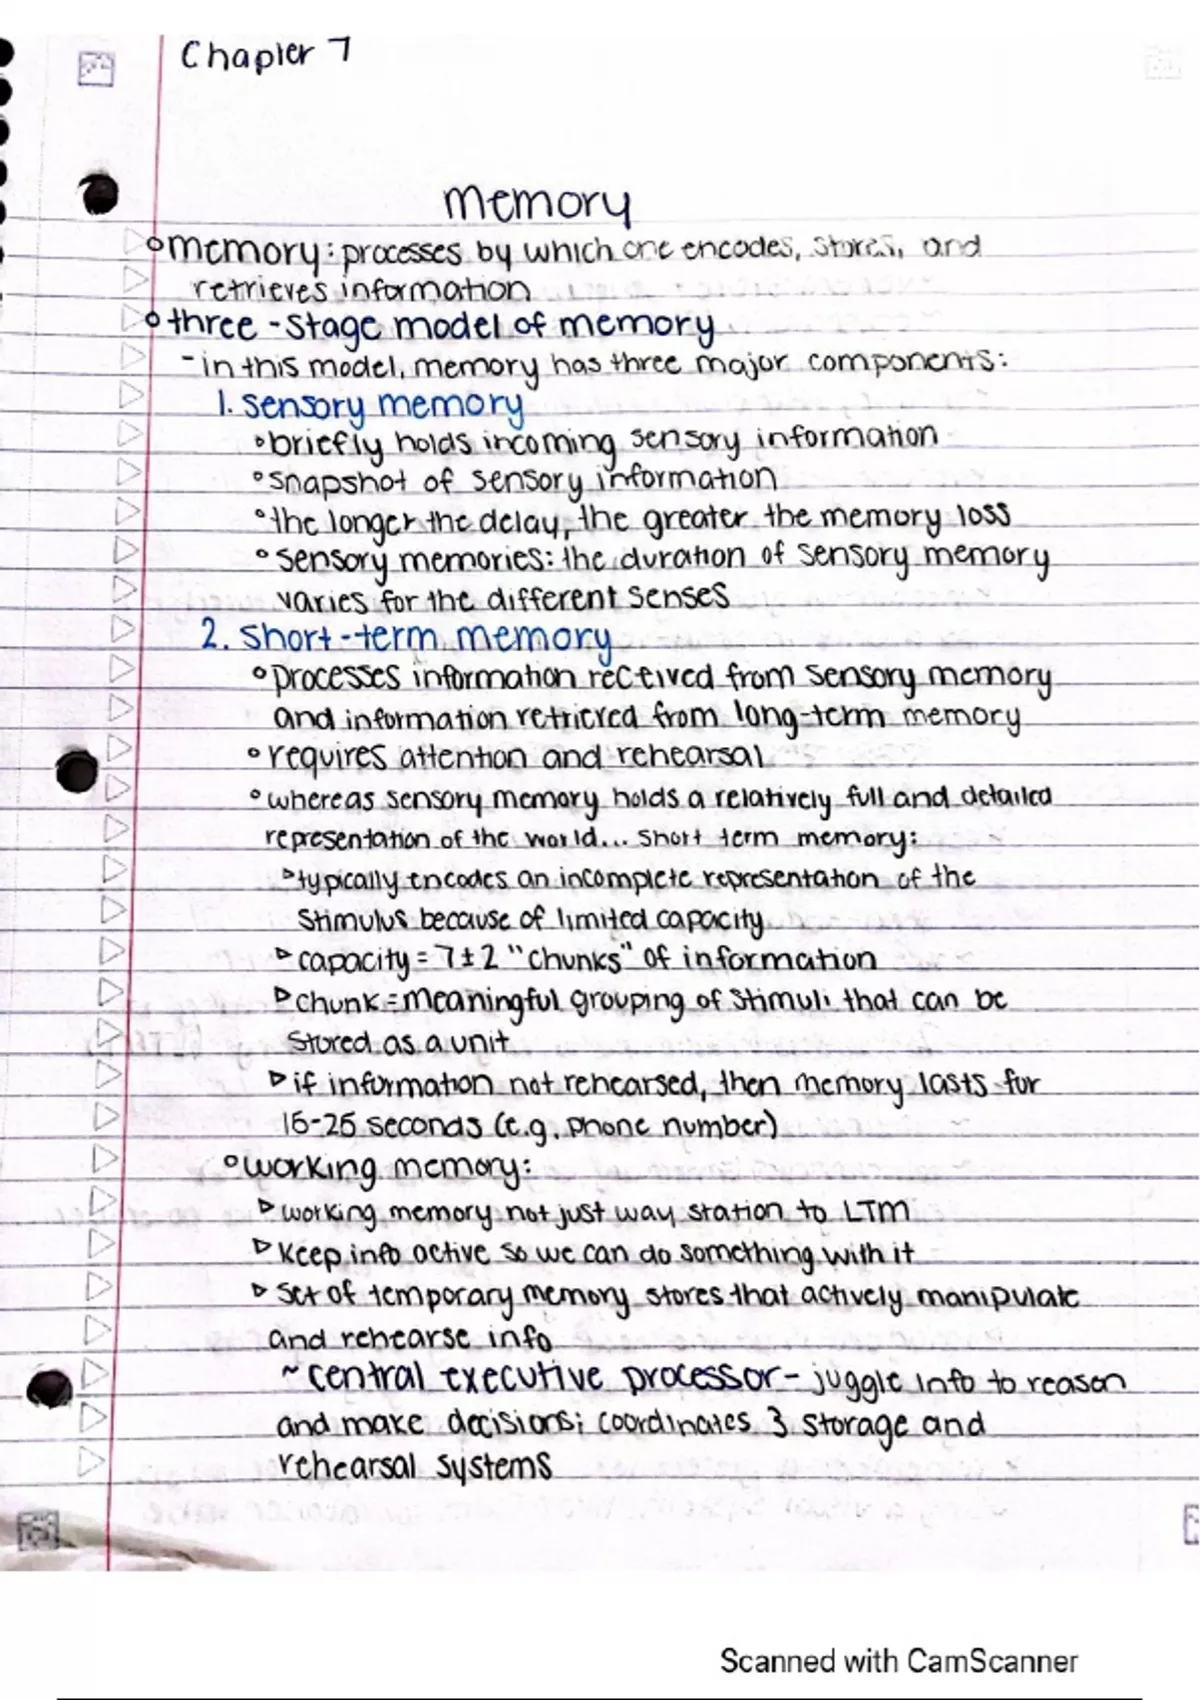 Chapter 7
memory
memory: processes by which one encodes, stores, and
retrieves information
three-stage model of memory
- in this model, memory has three major components:
1. sensory memory
briefly holds incoming sensory information
snapshot of sensory information
the longer the delay, the greater the memory loss
sensory memories: the duration of sensory memory
varies for the different senses
2. short-term memory
processes information received from sensory memory
and information retrieved from long-term memory
requires attention and rehearsal
whereas sensory memory holds a relatively full and detailed
representation of the world... short term memory:
typically encodes an incomplete representation of the
stimulus because of limited capacity
capacity = 7 ± 2 "chunks" of information
chunk = meaningful grouping of stimuli that can be
stored as a unit
if information not rehearsed, then memory lasts for
15-25 seconds (e.g. phone number)
working memory:
working memory not just way station to LTM
keep info active so we can do something with it
set of temporary memory stores that actively manipulate
and rehearse info
~ central executive processor - juggle info to reason
and make decisions; coordinates 3 storage and
rehearsal systems
Scanned with CamScanner